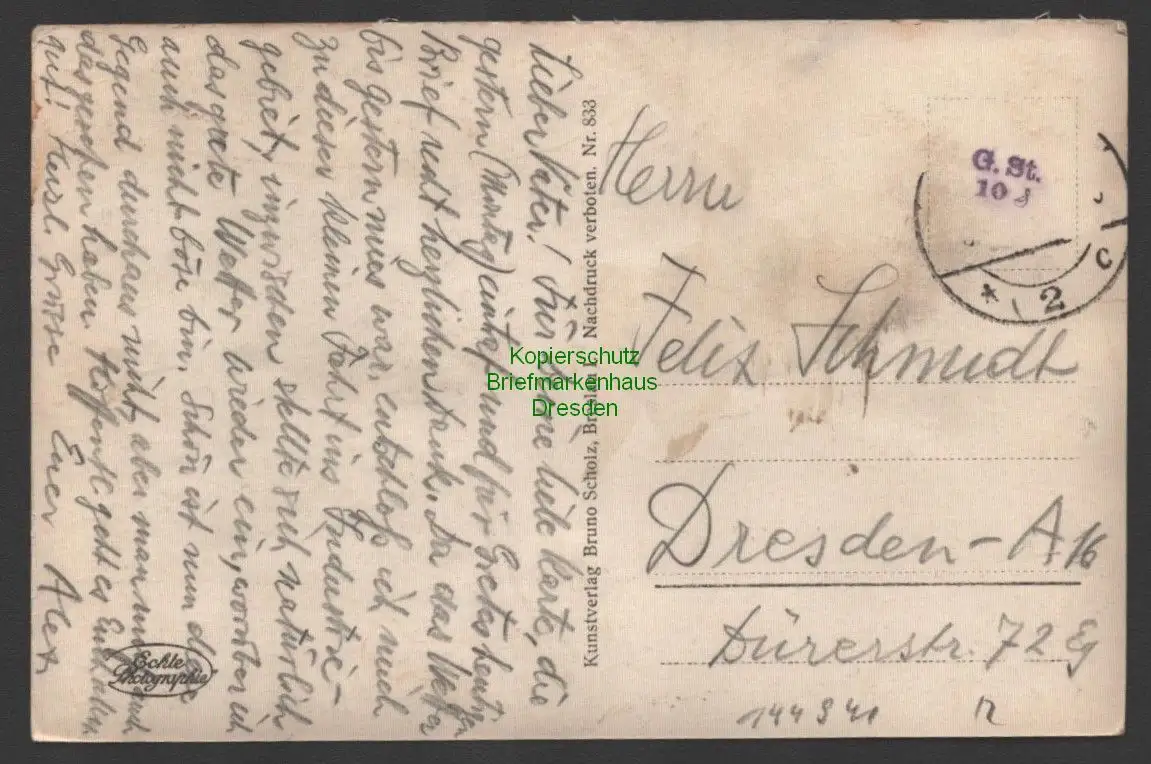 Lieber Vater! Für Deine liebe Karte, die
gestern (Montag) eintraf und für Gretes heutigen
Brief recht herzlichen Dank. Da das Wetter
bis gestern mies war, entschloß ich mich
zu dieser kleinen Fahrt ins Industrie-
gebiet, inzwischen stellte sich natürlich
das gute Wetter wieder ein, worüber ich
auch nicht böse bin. Schön ist nun diese
Gegend durchaus nicht, aber man muß auch
das gesehen haben. Hoffentl. geht es Euch allen
gut! Herzl. Grüße Euer Alex
Echte
Photographie
Kunstverlag Bruno Scholz, Breslau I. Nachdruck verboten. Nr. 833
G. St.
10 ₰
* 2 c
Herrn
Felix Schmidt
Dresden-A 16
Dürerstr. 72 Eg
144 9 40
Kopierschutz
Briefmarkenhaus
Dresden